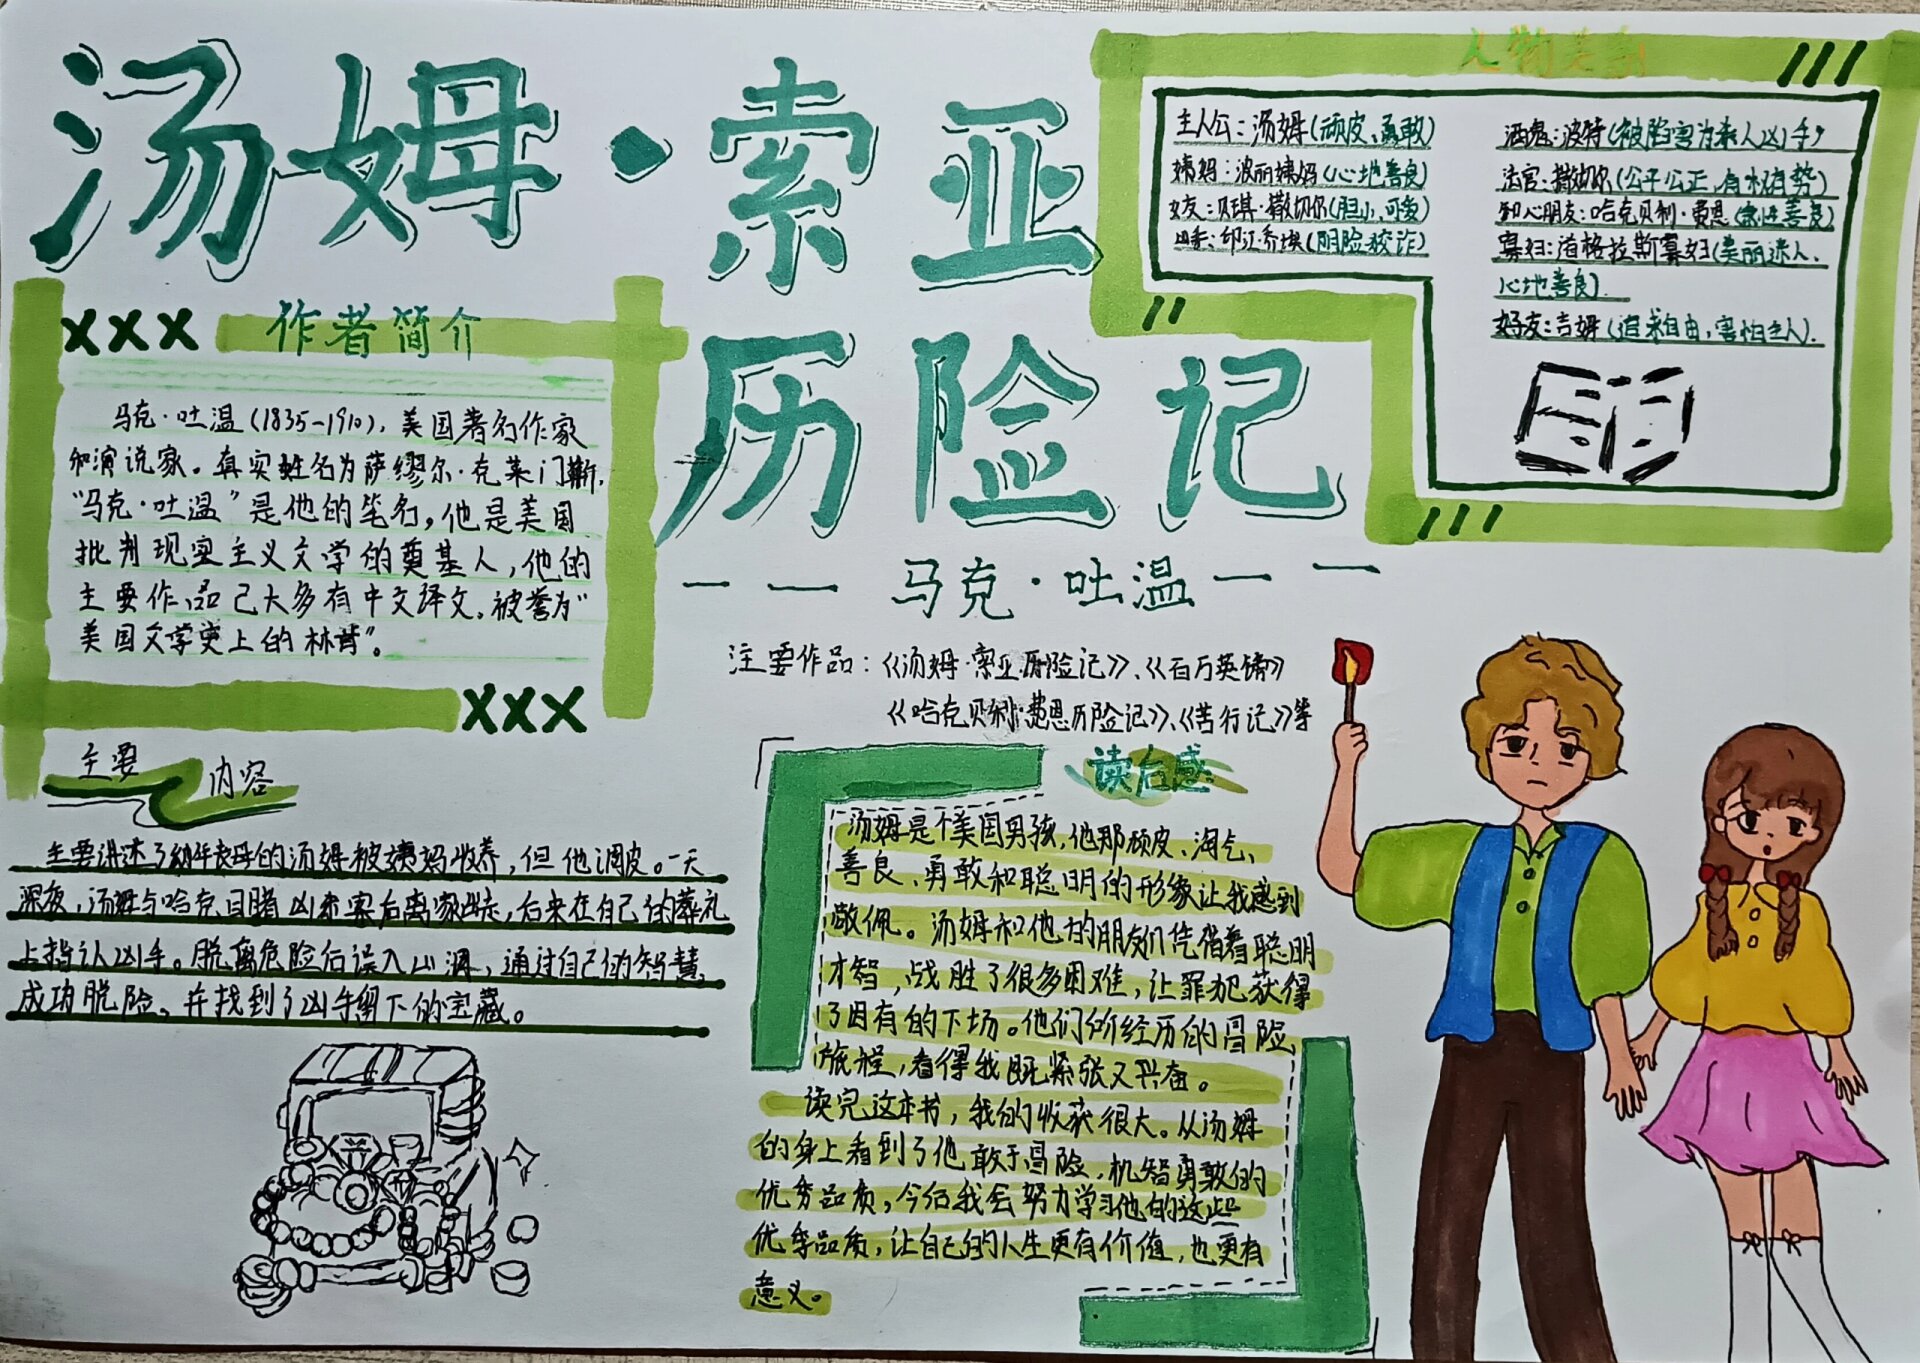 汤姆·索亚
历险记
——马克·吐温——
主要作品：《汤姆·索亚历险记》、《百万英镑》
《哈克贝利·费恩历险记》、《苦行记》等
人物关系
主人公：汤姆(顽皮、勇敢)
姨妈：波丽姨妈(心地善良)
女友：贝琪·撒切尔(胆小、可爱)
凶手：印江·乔埃(阴险狡诈)
酒鬼：波特(被陷害为杀人凶手)
法官：撒切尔(公平公正，有权有势)
知心朋友：哈克贝利·费恩(索性善良)
寡妇：道格拉斯寡妇(美丽迷人、
心地善良).
好友：吉姆(追求自由，害怕主人).
XXX 作者简介
马克·吐温(1835-1910)，美国著名作家
和演说家。真实姓名为萨缪尔·克莱门斯，
“马克·吐温”是他的笔名，他是美国
批判现实主义文学的奠基人，他的
主要作品已大多有中文译文。被誉为“
美国文学史上的林肯”。
XXX
主要内容
主要讲述了幼年丧母的汤姆被姨妈收养，但他调皮。一天
深夜，汤姆与哈克目睹凶杀案后离家出走，后来在自己的葬礼
上指认凶手。脱离危险后误入山洞，通过自己的智慧，
成功脱险，并找到了凶手留下的宝藏。
读后感
汤姆是个美国男孩，他那顽皮、淘气、
善良、勇敢和聪明的形象让我感到
敬佩。汤姆和他的朋友们凭借着聪明
才智，战胜了很多困难，让罪犯获得
了因有的下场。他们所经历的冒险
旅程，看得我既紧张又兴奋。
读完这本书，我的收获很大。从汤姆
的身上看到了他敢于冒险，机智勇敢的
优秀品质，今后我会努力学习他的这些
优秀品质，让自己的人生更有价值，也更有
意义。